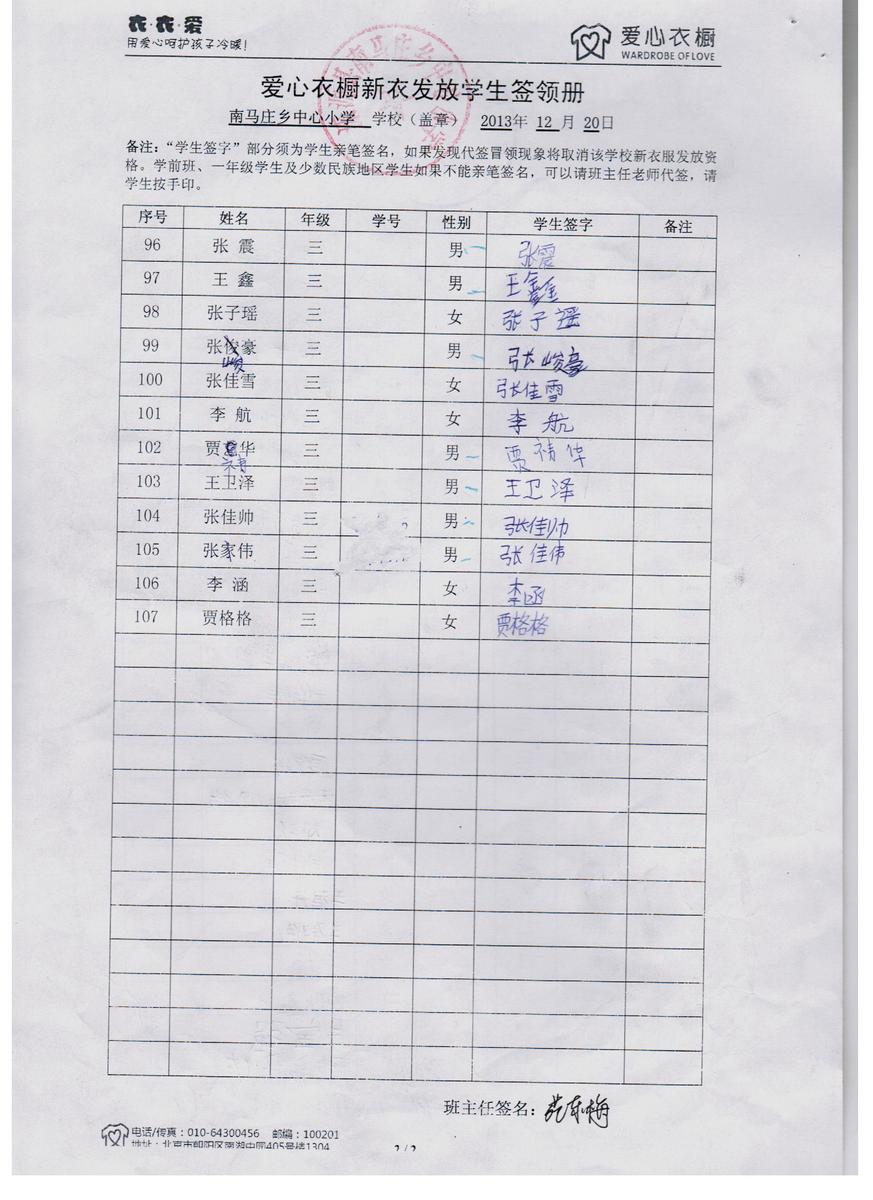 衣·衣·爱
用爱心呵护孩子冷暖!
爱心衣橱
WARDROBE OF LOVE
爱心衣橱新衣发放学生签领册
南马庄乡中心小学 学校（盖章） 2013年 12 月 20日
备注：“学生签字”部分须为学生亲笔签名，如果发现代签冒领现象将取消该学校新衣服发放资
格。学前班、一年级学生及少数民族地区学生如果不能亲笔签名，可以请班主任老师代签，请
学生按手印。
序号 姓名 年级 学号 性别 学生签字 备注
96 张 震 三 男 张震
97 王 鑫 三 男 王鑫
98 张子瑶 三 女 张子瑶
99 张俊豪 三 男 张峻豪
峻
100 张佳雪 三 女 张佳雪
101 李 航 三 女 李航
102 贾华 三 男 贾祯华
103 王卫泽 三 男 王卫泽
104 张佳帅 三 男 张佳帅
105 张家伟 三 男 张佳伟
106 李 涵 三 女 李函
107 贾格格 三 女 贾格格
班主任签名：
电话/传真：010-64300456 邮编：100201
地址：北京市朝阳区南湖中园405号楼1304
2/2